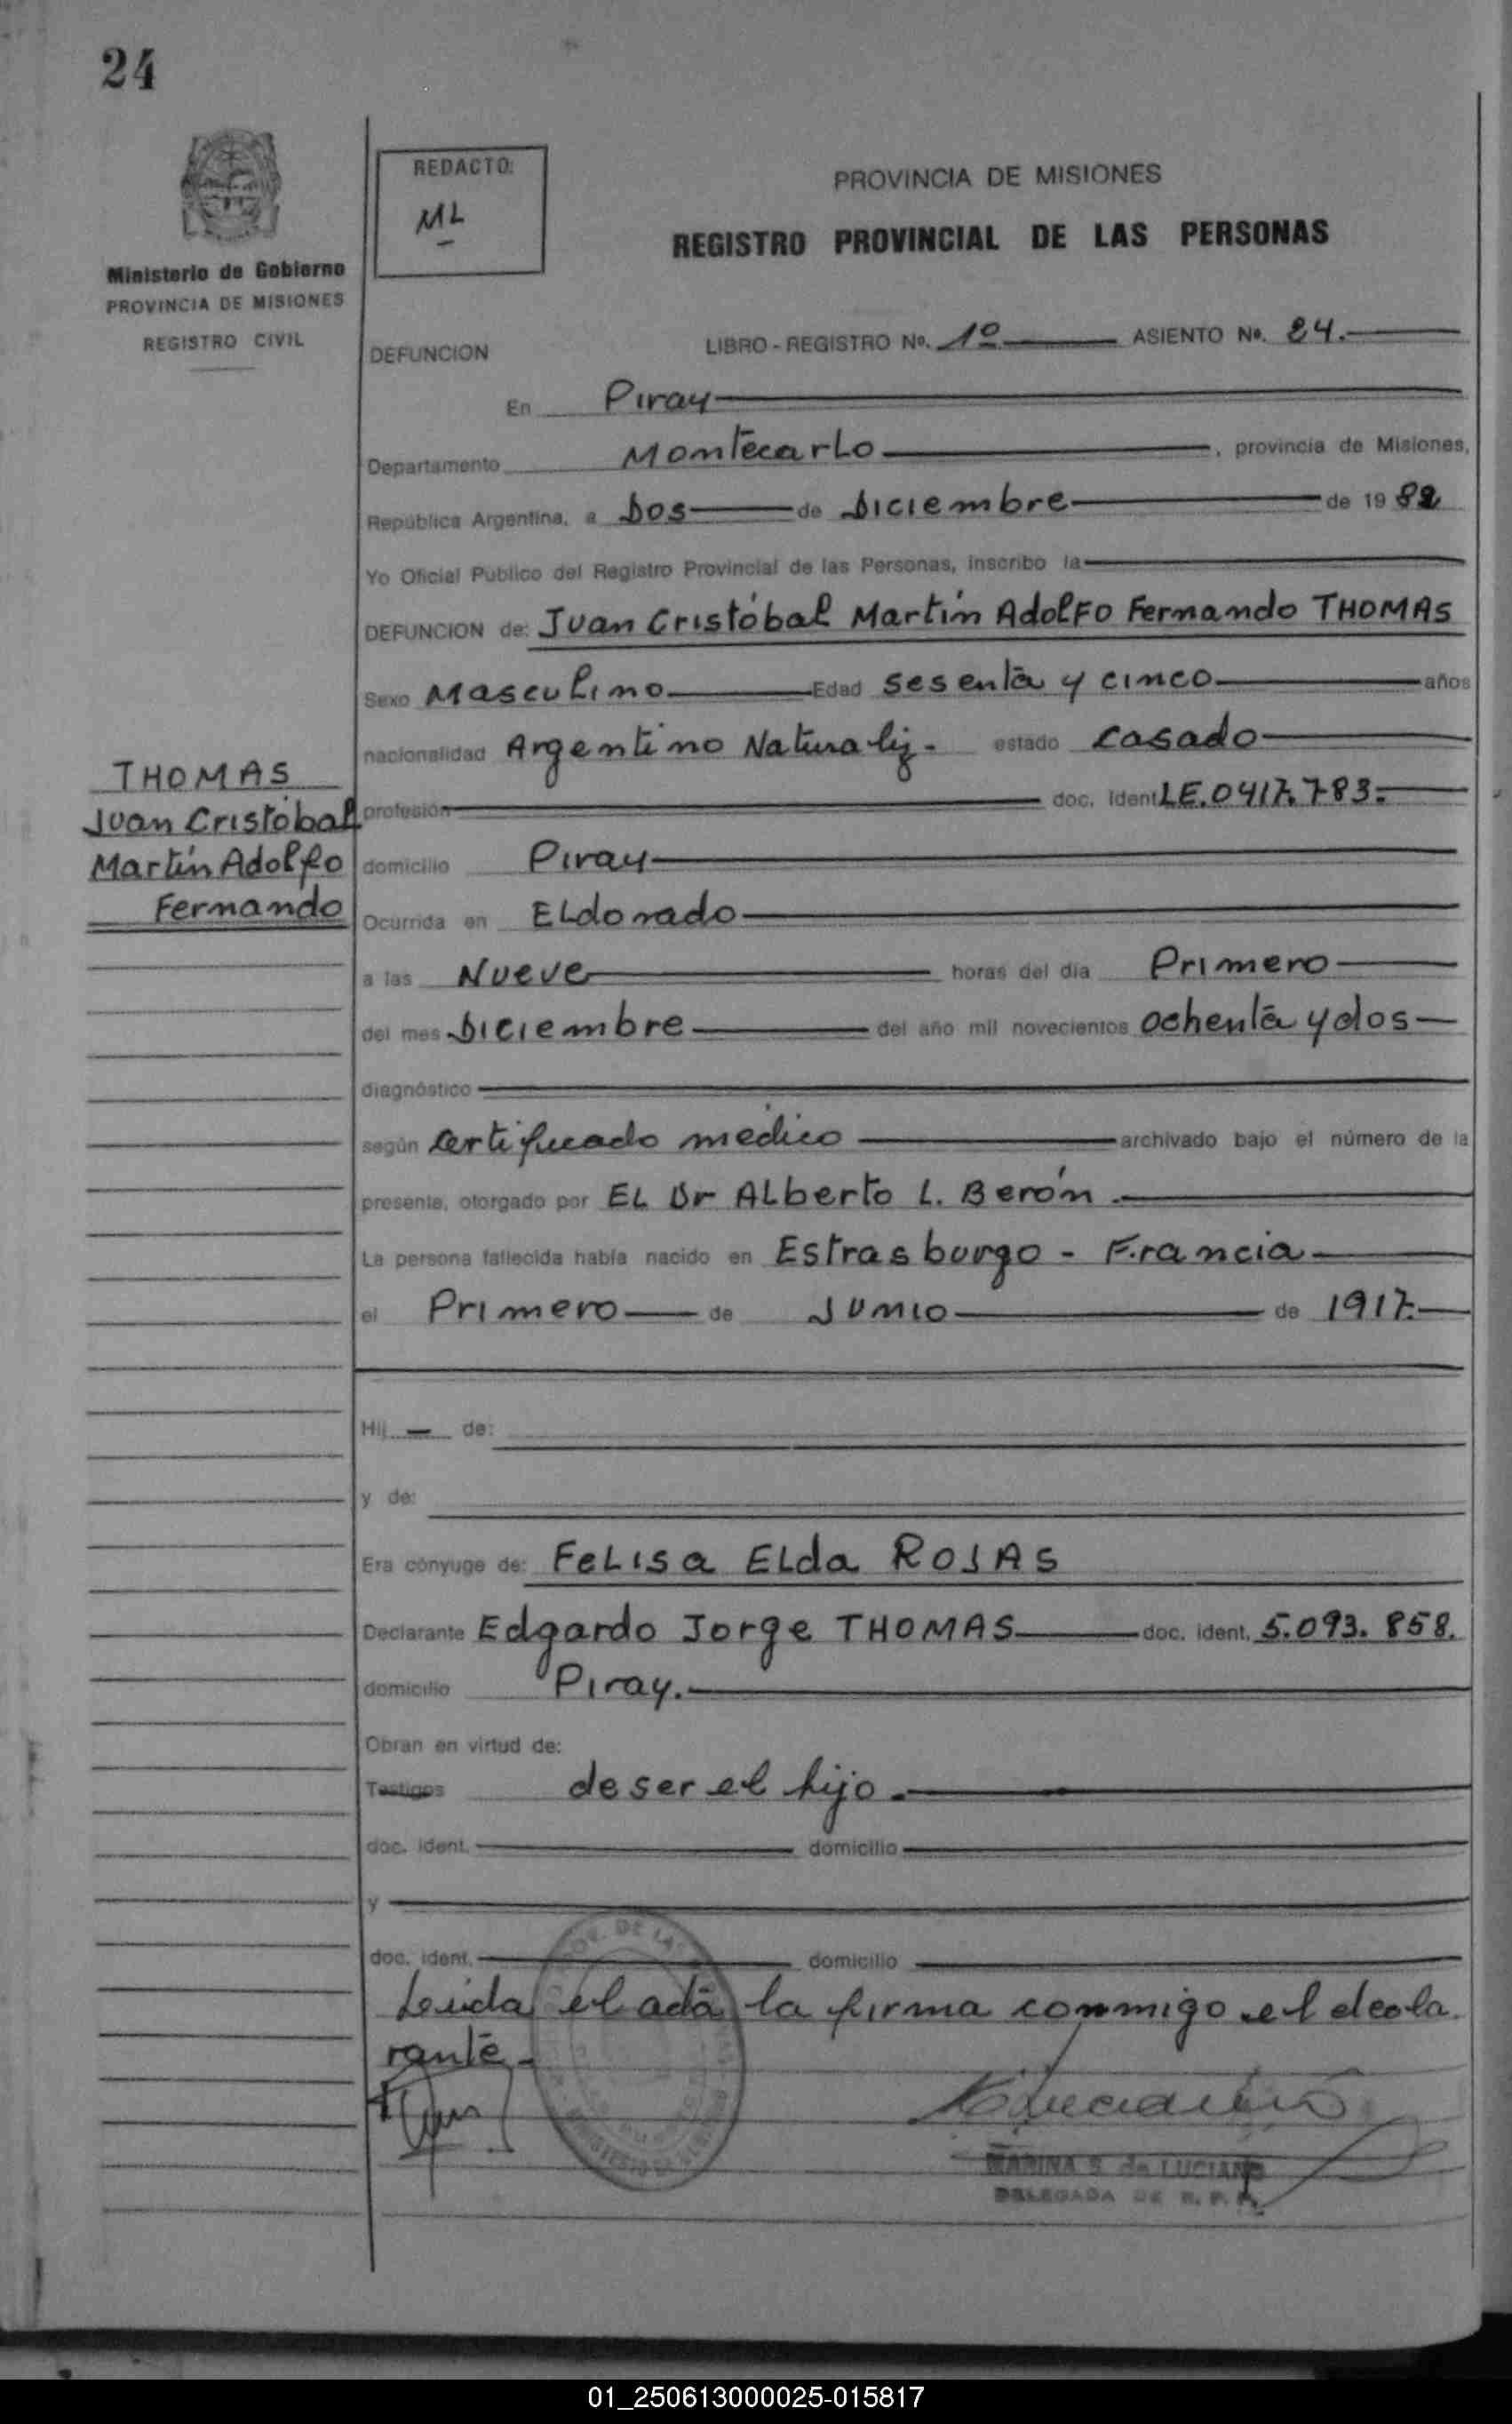 24
REDACTO:
ML
PROVINCIA DE MISIONES
REGISTRO PROVINCIAL DE LAS PERSONAS
Ministerio de Gobierno
PROVINCIA DE MISIONES
REGISTRO CIVIL
DEFUNCION LIBRO - REGISTRO No. 1º ASIENTO No. 24.
En Piray
Departamento Montecarlo, provincia de Misiones,
República Argentina, a Dos de Diciembre de 1982
Yo Oficial Publico del Registro Provincial de las Personas, inscribo la
DEFUNCION de: Juan Cristóbal Martín Adolfo Fernando THOMAS
Sexo Masculino Edad sesenta y cinco años
nacionalidad Argentino Naturaliz. estado casado
THOMAS
Juan Cristóbal
Martín Adolfo
Fernando
profesión doc. ident LE.0417.783.
domicilio Piray
Ocurrida en Eldorado
a las Nueve horas del día Primero
del mes Diciembre del año mil novecientos ochenta y dos
diagnóstico
según certificado médico archivado bajo el número de la
presente, otorgado por El Dr Alberto L. Berón.
La persona fallecida había nacido en Estrasburgo - Francia
el Primero de Junio de 1917.
Hij - de:
y de:
Era cónyuge de: Felisa Elda ROJAS
Declarante Edgardo Jorge THOMAS doc. ident. 5.093.858.
domicilio Piray.
Obran en virtud de:
Testigos de ser el hijo.
doc. ident. domicilio
y
doc. ident. domicilio
Leida el acta la firma conmigo el decla
rante.
MARINA S. de LUCIANO
DELEGADA DE R. P. P.
01_250613000025-015817